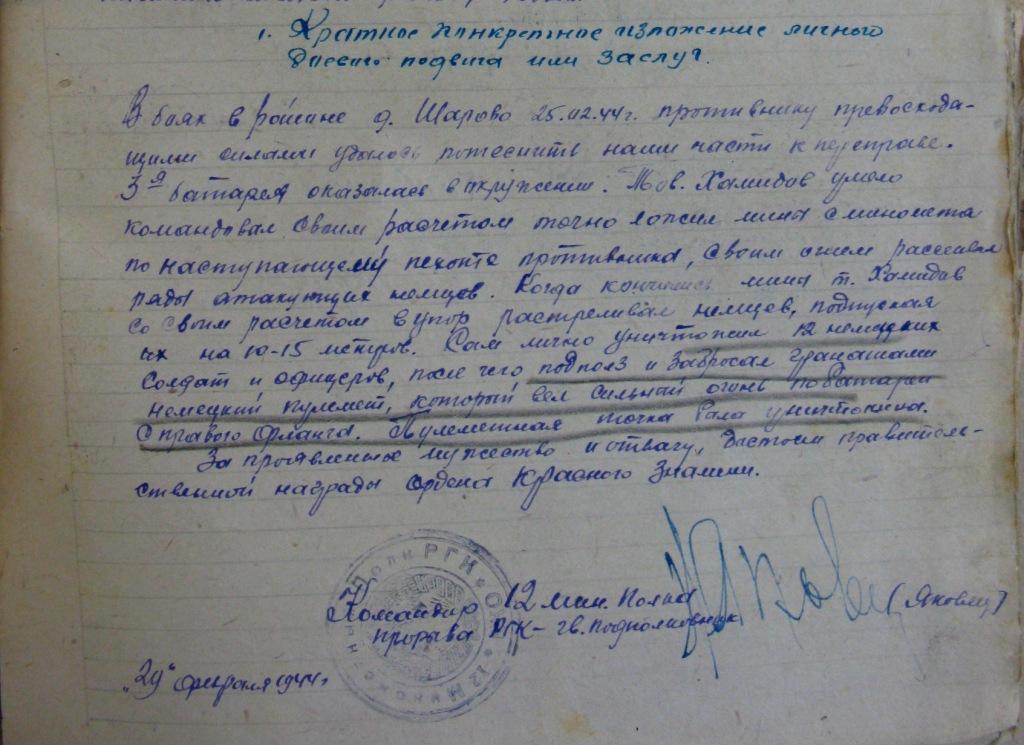 1. Краткое конкретное изложение личного
боевого подвига или заслуг.
В боях в районе д. Шарово 25.02.44г. противнику превосходя-
щими силами удалось потеснить наши части к переправе.
3я батарея оказалась в окружении. Тов. Хамидов умело
командовал своим расчетом точно ложил мины с миномета
по наступающему пехоте противника, своим огнем рассеивал
ряды атакующих немцев. Когда кончились мины т. Хамидов
со своим расчетом в упор растреливал немцев, подпуская
их на 10-15 метров. Сам лично уничтожил 12 немецких
солдат и офицеров, после чего подполз и забросал гранатами
немецкий пулемет, который вел сильный огонь по батареи
с правого фланга. Пулеметная точка была уничтожена.
За проявленное мужество и отвагу, достоин правитель-
ственной награды ордена Красного Знамени.
Командир 12 мин. полка
прорыва РГК - гв. подполковник
(Яковец)
"29" февраля 1944г.
Полк РГК
12 Минома